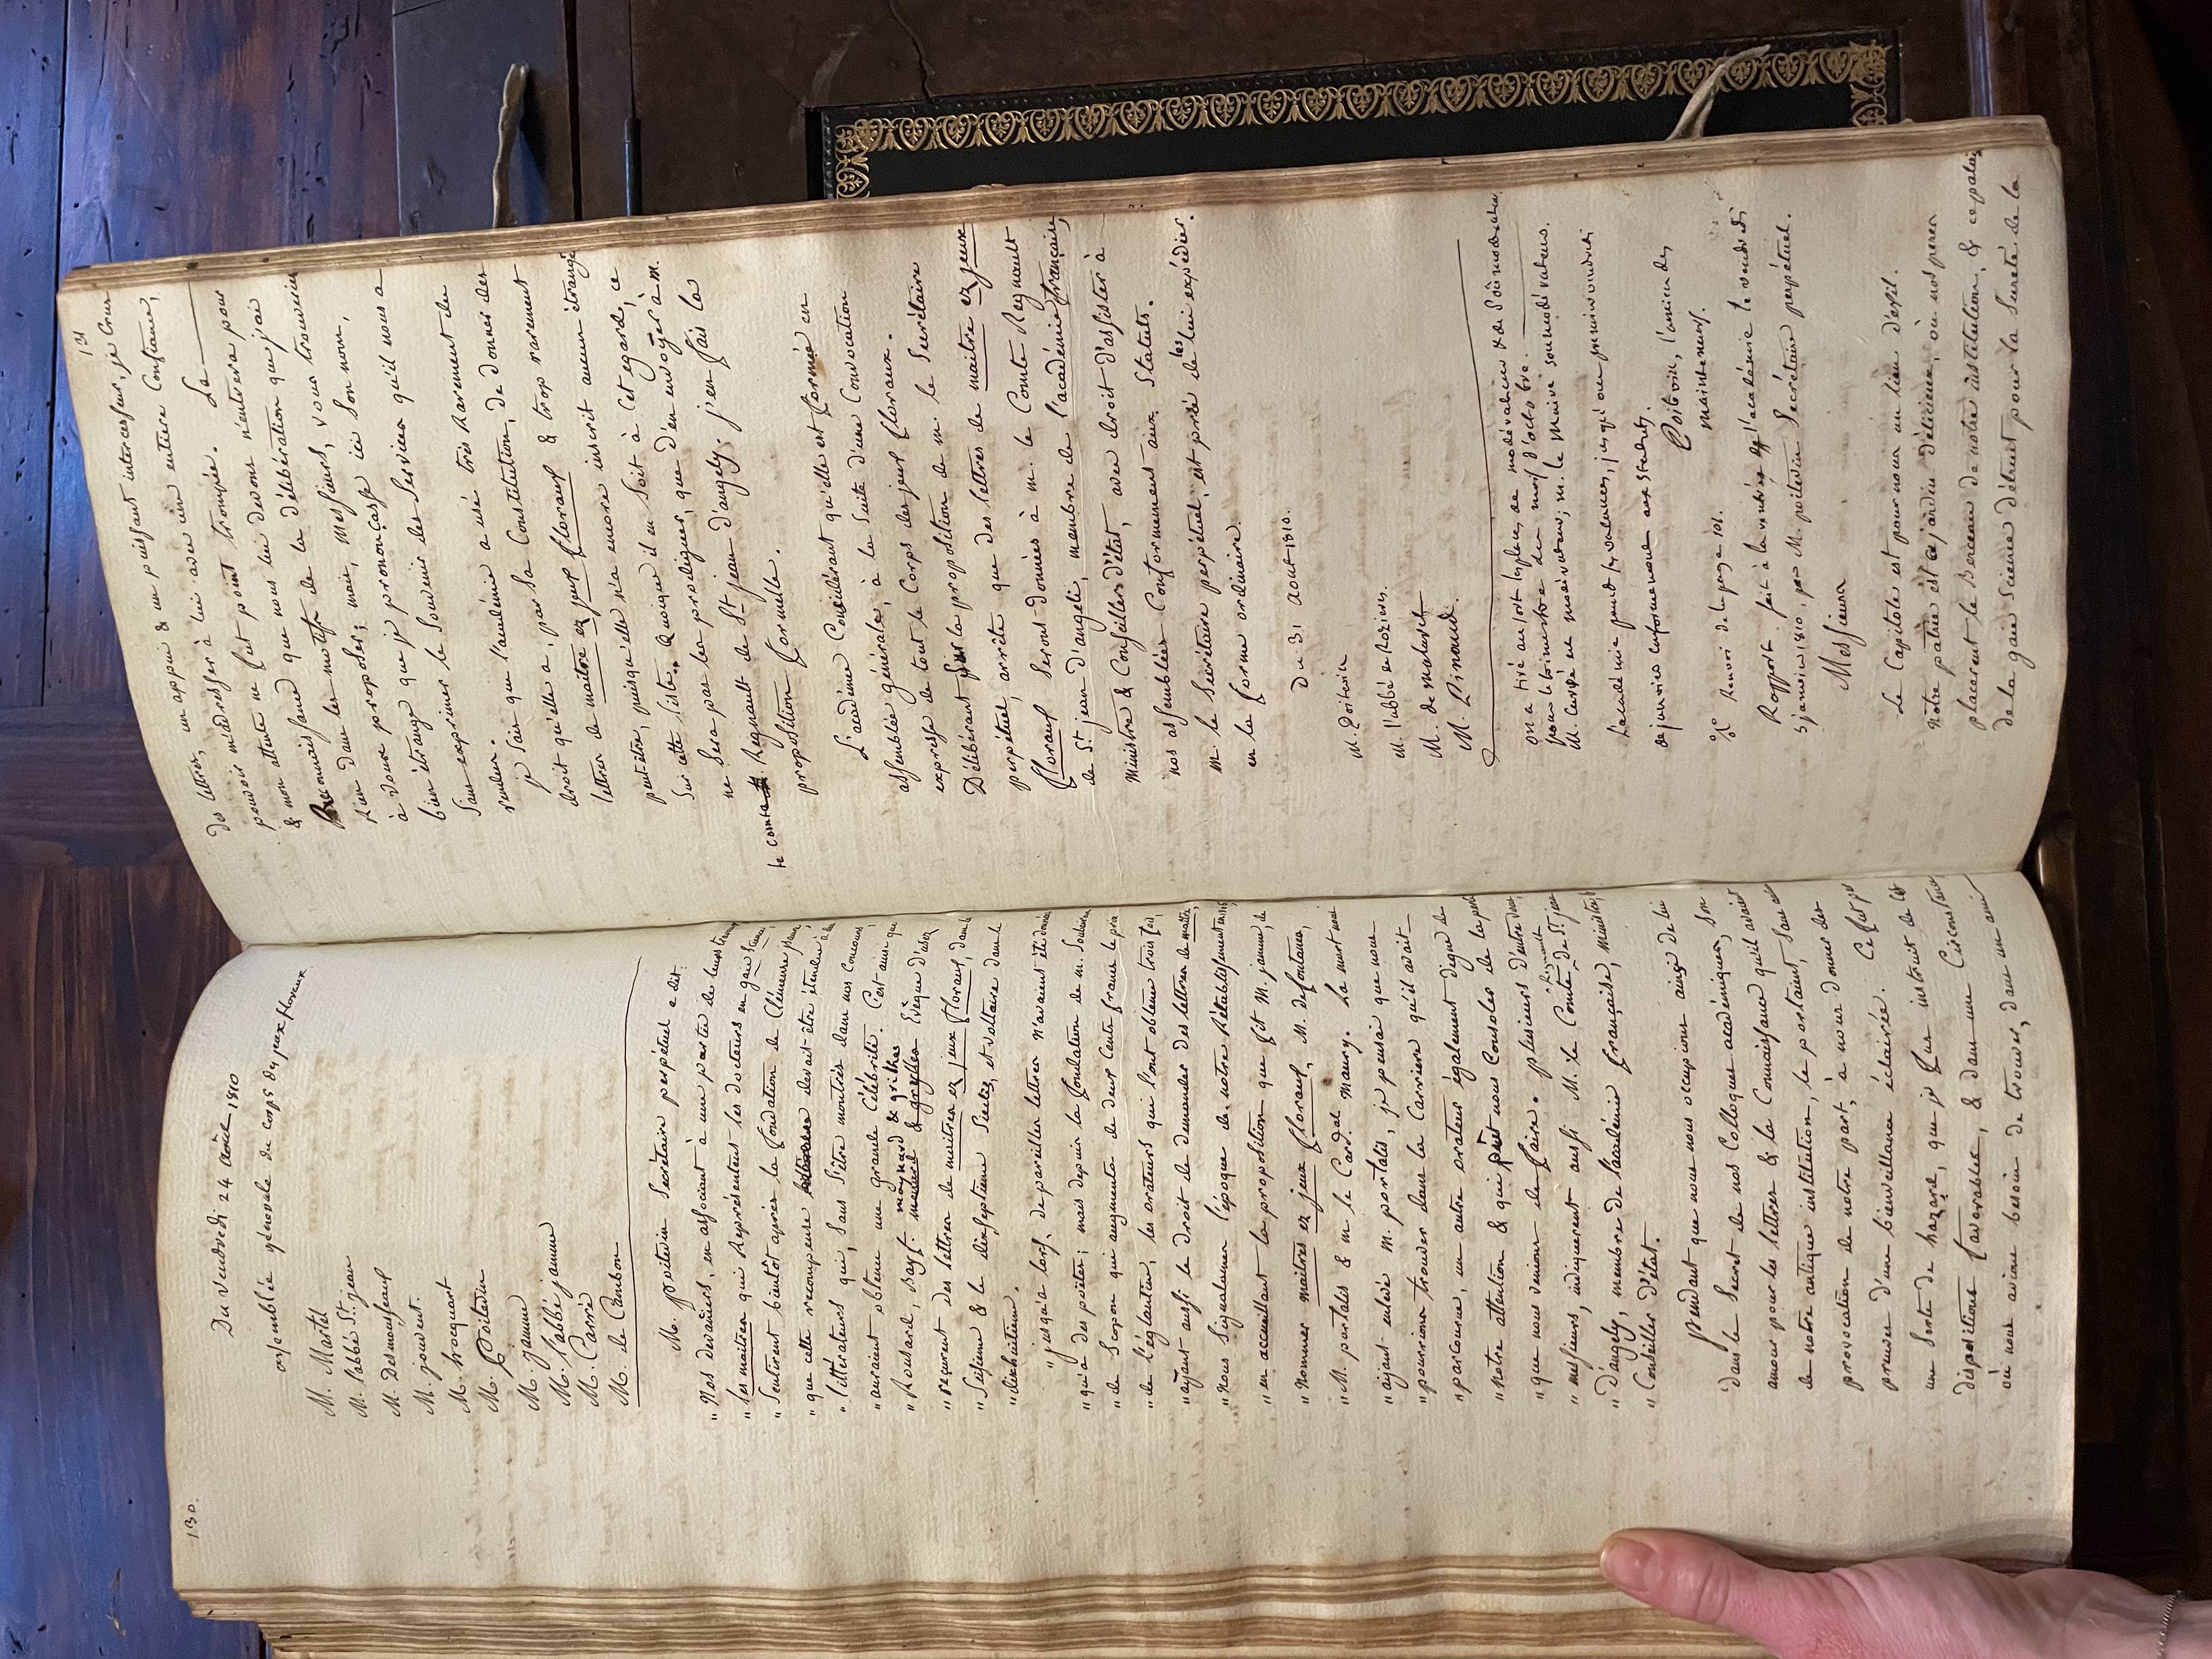 130.
Du Vendredi 24 août 1810
assemblée générale du corps des jeux floraux.
M. Martel
M. l'abbé St. jean
M. Desmousseaux
M. jouvent.
M. trocquart
M. Poitevin
M. jamme
M. l'abbé jamme
M. Carré
M. de Cambon
M. poitevin Secrétaire perpétuel a dit.
"Nos devanciers, en associant à une partie de leurs
"les maîtres qui Représentent les docteurs en gaie Science,
"Sentirent bientôt après la fondation de Clémence
"que cette récompense devait être étendue à
"littérateurs qui, Sans S'être montrés dans nos Concours,
"auraient obtenu une grande Célébrité. C'est ainsi que
"Ronsard, Bayf. maynard & Evêque
"reçurent des lettres de maîtres ez jeux floraux, dans le
"Seisième & le dixseptième Siècles, et voltaire dans le
"dixhuitième.
"jusqu'alors, de pareilles lettres n'avaient été données
"qu'à des poëtes; mais depuis la fondation de m. Soubeiran
"de Scopon qui augmenta de deux Cents francs le prix
"de l'églantine, les orateurs qui l'ont obtenue trois fois,
"ayant aussi le droit de demander des lettres de maître,
"Nous Signalames l'époque de notre Rétablissement
"en accueillant la proposition que fit M. jamme, de
"Nommer maîtres ez jeux floraux, M. defontanes,
"M. portalis & m le Cardal maury. La mort nous
"ayant enlevé M. portalis, je pensai que nous
"pourrions trouver dans la Carrière qu'il avait
"parcourue, un autre orateur également digne de
"notre attention & qui pût nous Consoler de la perte
"que nous venions de faire. plusieurs d'entre vous,
"messieurs, indiquerent aussi M. le Comte Regnault de St jean
"D'angely, membre de l'académie française, Ministre
"Conseiller d'état.
Pendant que nous nous occupions ainsi de lui
dans le Secret de nos Colloques académiques, Son
amour pour les lettres & la Connaissance qu'il avait
de notre antique institution, le portaient, Sans
provocation de notre part, à nous donner des
preuves d'une bienveillance éclairée. Ce fut par
une Sorte de hazard, que je fus instruit de ces
dispositions favorables, & dans une Circonstance
où nous avions besoin de trouver, dans un ami
131
des lettres, un appui & un puissant intercesseur, je Crus
pouvoir m'adresser à lui avec une entière Confiance,
& mon attente ne fut point trompée. La
Reconnaissance que nous lui devons n'entrera pour
Rien dans les motifs de la délibération que j'ai
à vous proposer; mais, Messieurs, vous trouveriez
bien étrange que je prononçasse ici Son nom,
Sans exprimer le Souvenir des Services qu'il nous a
rendus.
je Sais que l'académie a usé très Rarement du
droit qu'elle a, par Sa Constitution, de donner des
lettres de maître ez jeux floraux & trop rarement
peut être, puisqu'elle n'a encore inscrit aucun étranger
Sur cette liste. Quoiqu'il en Soit à Cet égard, ce
ne Sera pas les prodiguer, que d'en envoyer à m.
le comte Regnault de St jean d'angely. j'en fais la
proposition formelle.
L'académie Considérant qu'elle est formée en
assemblée générale, à la Suite d'une Convocation
expresse de tout le Corps des jeux floraux.
Délibérant Sur la proposition de m. le Secrétaire
perpétuel, arrête que des lettres de maître ez jeux
floraux Seront données à m. le Comte Regnault
de St jean d'angeli, membre de l'académie française,
Ministre & Conseiller d'état, avec droit d'assister à
nos assemblées Conformément aux Statuts.
m le Secrétaire perpétuel, est prié de les lui expédier.
en la forme ordinaire.
Du 31 aout 1810.
M. Poitevin
M. l'abbé de Roziers.
M. de malaret
M. Pinaud.
on a tiré au Sort les places de modérateur & de Sousmodérateur
pour le trimestre du mois d'octobre.
M. Carré est modérateur; m. le Maire Sousmodérateur.
L'académie prend les vacances, jusqu'au premier vendredi
de janvier conformément aux Statuts.
Poitevin, l'ancien des
mainteneurs.
Renvoi de la page 101.
Rapport fait à la rentrée de l'académie le vendredi
5 janvier 1810, par M. poitevin Secrétaire perpétuel.
Messieurs
Le Capitole est pour nous un lieu d'exil.
Notre patrie est ce jardin délicieux, où nos peres
placerent le Berceau de notre institution, & ce palais
de la gaie Science détruit pour la Sureté de la